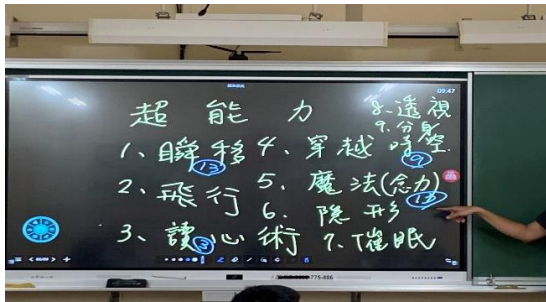 09:47
超能力
8、透視
9、分身
1、瞬移
13
4、穿越時空
9
2、飛行
5、魔法(念力)
13
6、隱形
3、讀心術
3
7、催眠